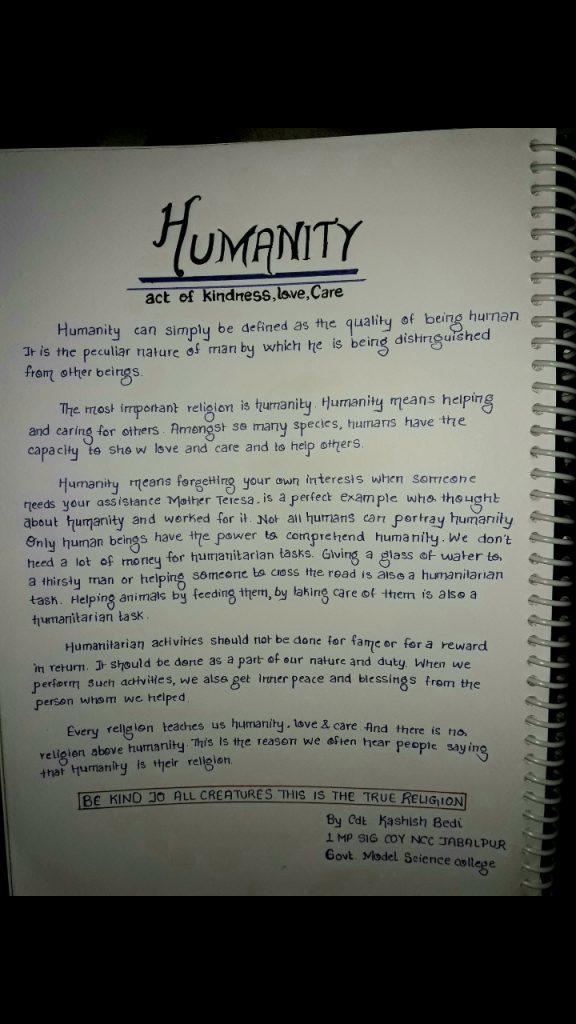 HUMANITY
act of kindness, love, Care
Humanity can simply be defined as the quality of being human
It is the peculiar nature of man by which he is being distinguished
from other beings.
The most important religion is humanity. Humanity means helping
and caring for others. Amongst so many species, humans have the
capacity to show love and care and to help others.
Humanity means forgetting your own interests when someone
needs your assistance Mother Teresa. is a perfect example who thought
about humanity and worked for it. Not all humans can portray humanity.
Only human beings have the power to comprehend humanity. We don't
need a lot of money for humanitarian tasks. Giving a glass of water to
a thirsty man or helping someone to cross the road is also a humanitarian
task. Helping animals by feeding them, by taking care of them is also a
humanitarian task.
Humanitarian activities should not be done for fame or for a reward
in return. It should be done as a part of our nature and duty. When we
perform such activities, we also get inner peace and blessings from the
person whom we helped.
Every religion teaches us humanity. love & care And there is no
religion above humanity. This is the reason we often hear people saying
that humanity is their religion.
BE KIND TO ALL CREATURES THIS IS THE TRUE RELIGION
By Cdt Kashish Bedi
1 MP SIG COY NCC JABALPUR
Govt. Model Science college